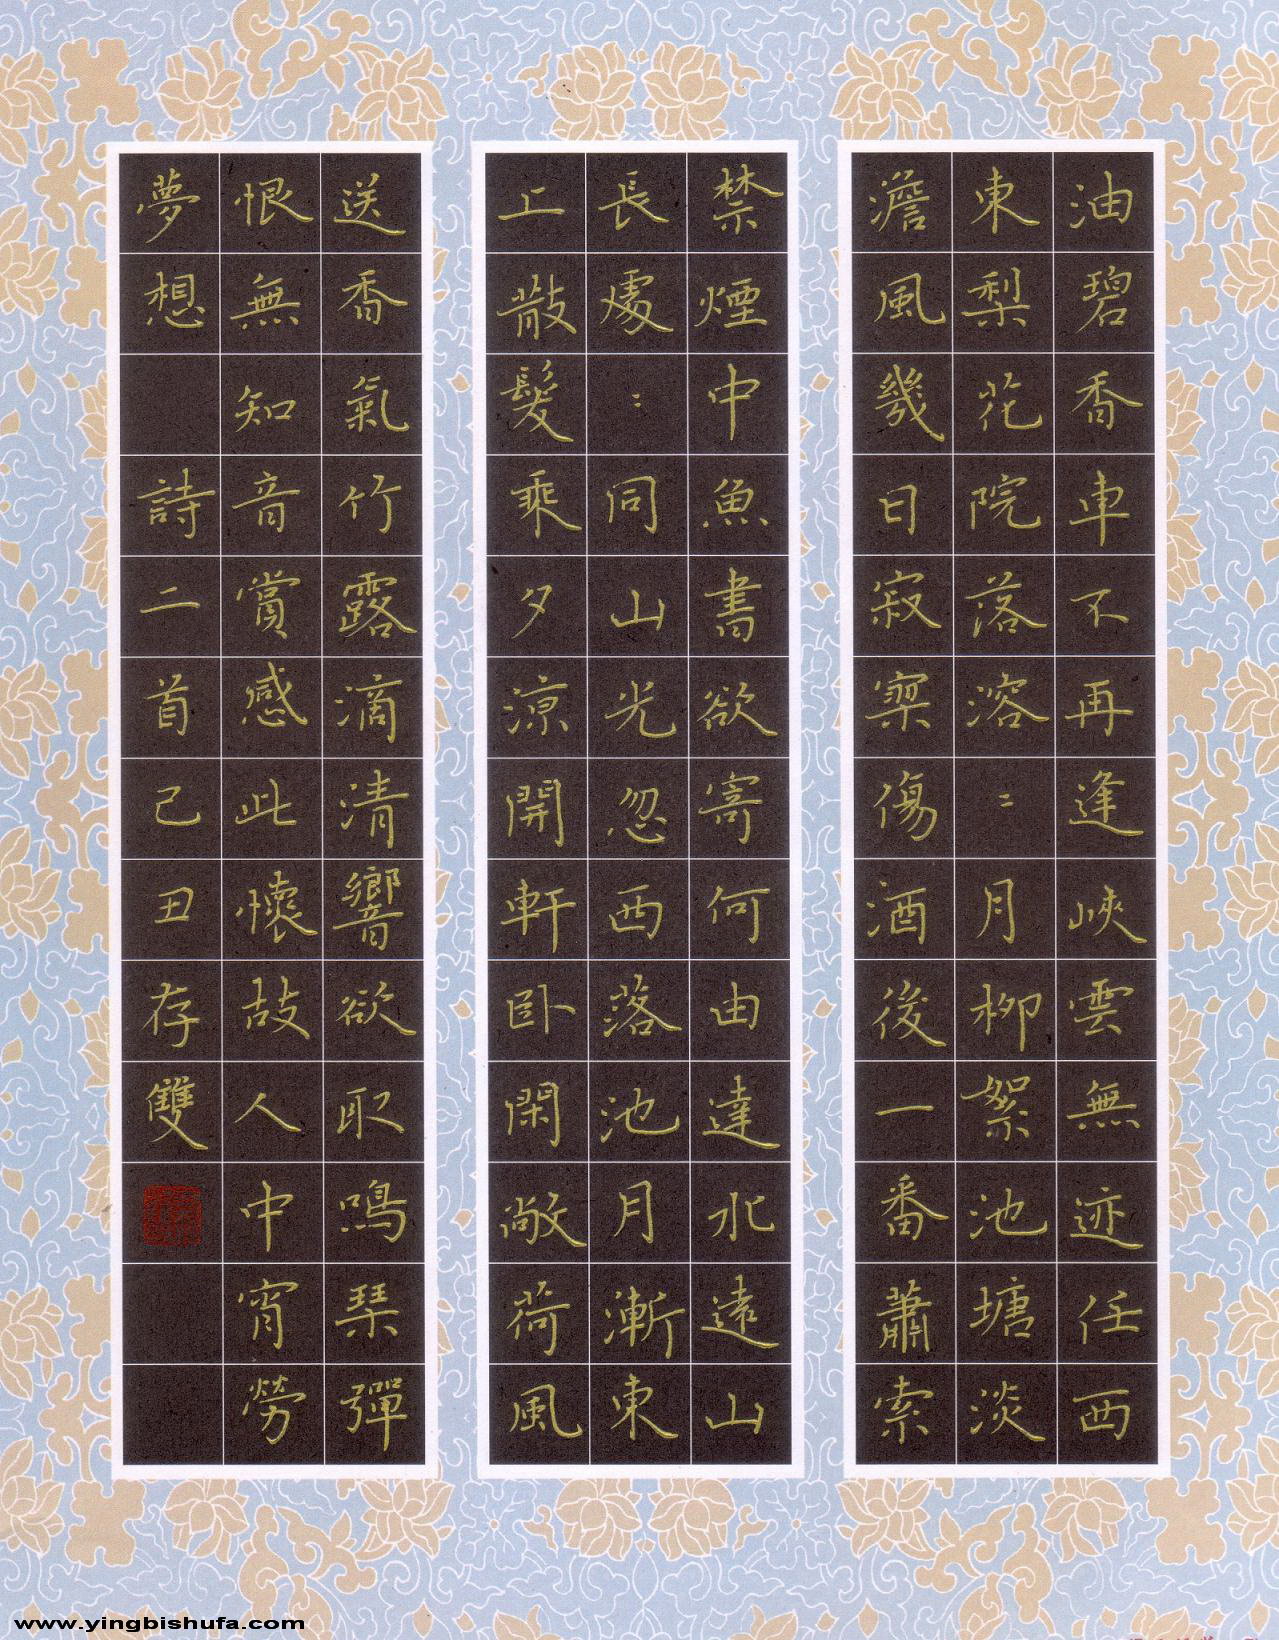 油碧香車不再逢峽雲無迹任西
東梨花院落溶〻月柳絮池塘淡
澹風幾日寂寞傷酒後一番蕭索
禁煙中魚書欲寄何由達水遠山
長處〻同山光忽西落池月漸東
上散髮乘夕涼開軒卧閑敞荷風
送香氣竹露滴清響欲取鳴琴彈
恨無知音賞感此懷故人中宵勞
夢想 詩二首己丑存雙
www.yingbishufa.com